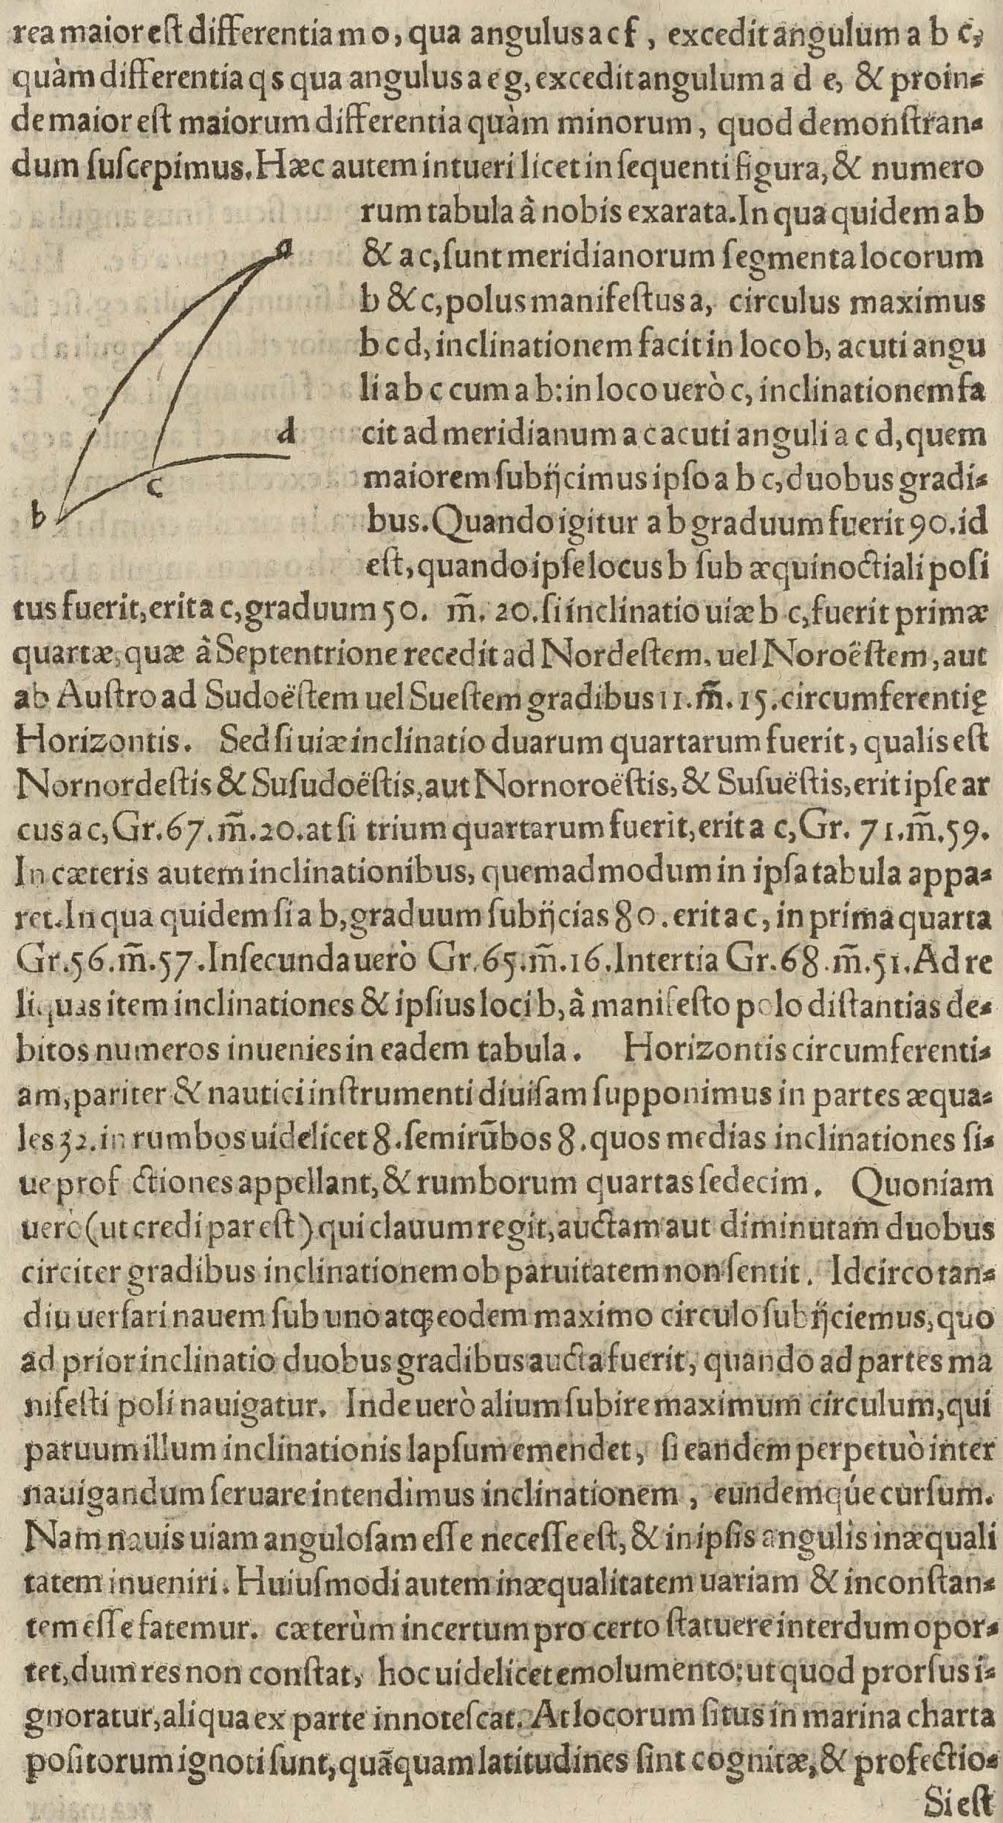 rea maior est differentia m o, qua angulus a c f, excedit angulum a b c,
quàm differentia q s qua angulus a e g, excedit angulum a d e, & proin-
de maior est maiorum differentia quàm minorum, quod demonstran-
dum suscepimus. Hæc autem intueri licet in sequenti figura, & numero
rum tabula à nobis exarata. In qua quidem a b
& a c, sunt meridianorum segmenta locorum
b & c, polus manifestus a, circulus maximus
b c d, inclinationem facit in loco b, acuti angu
li a b c cum a b: in loco uerò c, inclinationem fa
cit ad meridianum a c acuti anguli a c d, quem
maiorem subijcimus ipso a b c, duobus gradi-
bus. Quando igitur a b graduum fuerit 90. id
est, quando ipse locus b sub æquinoctiali posi
a
d
c
b
tus fuerit, erit a c, graduum 50. m̃. 20. si inclinatio uiæ b c, fuerit primæ
quartæ, quæ à Septentrione recedit ad Nordestem, uel Noroëstem, aut
ab Austro ad Sudoëstem uel Suestem gradibus 11. m̃. 15. circumferentię
Horizontis. Sed si uiæ inclinatio duarum quartarum fuerit, qualis est
Nornordestis & Susudoëstis, aut Nornoroëstis, & Susuëstis, erit ipse ar
cus a c, Gr. 67. m̃. 20. at si trium quartarum fuerit, erit a c, Gr. 71. m̃. 59.
In cæteris autem inclinationibus, quemadmodum in ipsa tabula appa-
ret. In qua quidem si a b, graduum subijcias 80. erit a c, in prima quarta
Gr. 56. m̃. 57. In secunda uerò Gr. 65. m̃. 16. In tertia Gr. 68. m̃. 51. Ad re
liquas item inclinationes & ipsius loci b, à manifesto polo distantias de-
bitos numeros inuenies in eadem tabula. Horizontis circumferenti-
am, pariter & nautici instrumenti diuisam supponimus in partes æqua-
les 32. in rumbos uidelicet 8. semirũbos 8. quos medias inclinationes si-
ue profectiones appellant, & rumborum quartas sedecim. Quoniam
uerò (ut credi par est) qui clauum regit, auctam aut diminutam duobus
circiter gradibus inclinationem ob paruitatem non sentit. Idcirco tan-
diu uersari nauem sub uno atq; eodem maximo circulo subijciemus, quo
ad prior inclinatio duobus gradibus aucta fuerit, quando ad partes ma
nifesti poli nauigatur. Inde uerò alium subire maximum circulum, qui
paruum illum inclinationis lapsum emendet, si eandem perpetuò inter
nauigandum seruare intendimus inclinationem, eundemqúe cursum.
Nam nauis uiam angulosam esse necesse est, & in ipsis angulis inæquali
tatem inueniri. Huiusmodi autem inæqualitatem uariam & inconstan-
tem esse fatemur. cæterùm incertum pro certo statuere interdum opor-
tet, dum res non constat, hoc uidelicet emolumento: ut quod prorsus i-
gnoratur, aliqua ex parte innotescat. At locorum situs in marina charta
positorum ignoti sunt, quãquam latitudines sint cognitæ, & profectio-
Si est